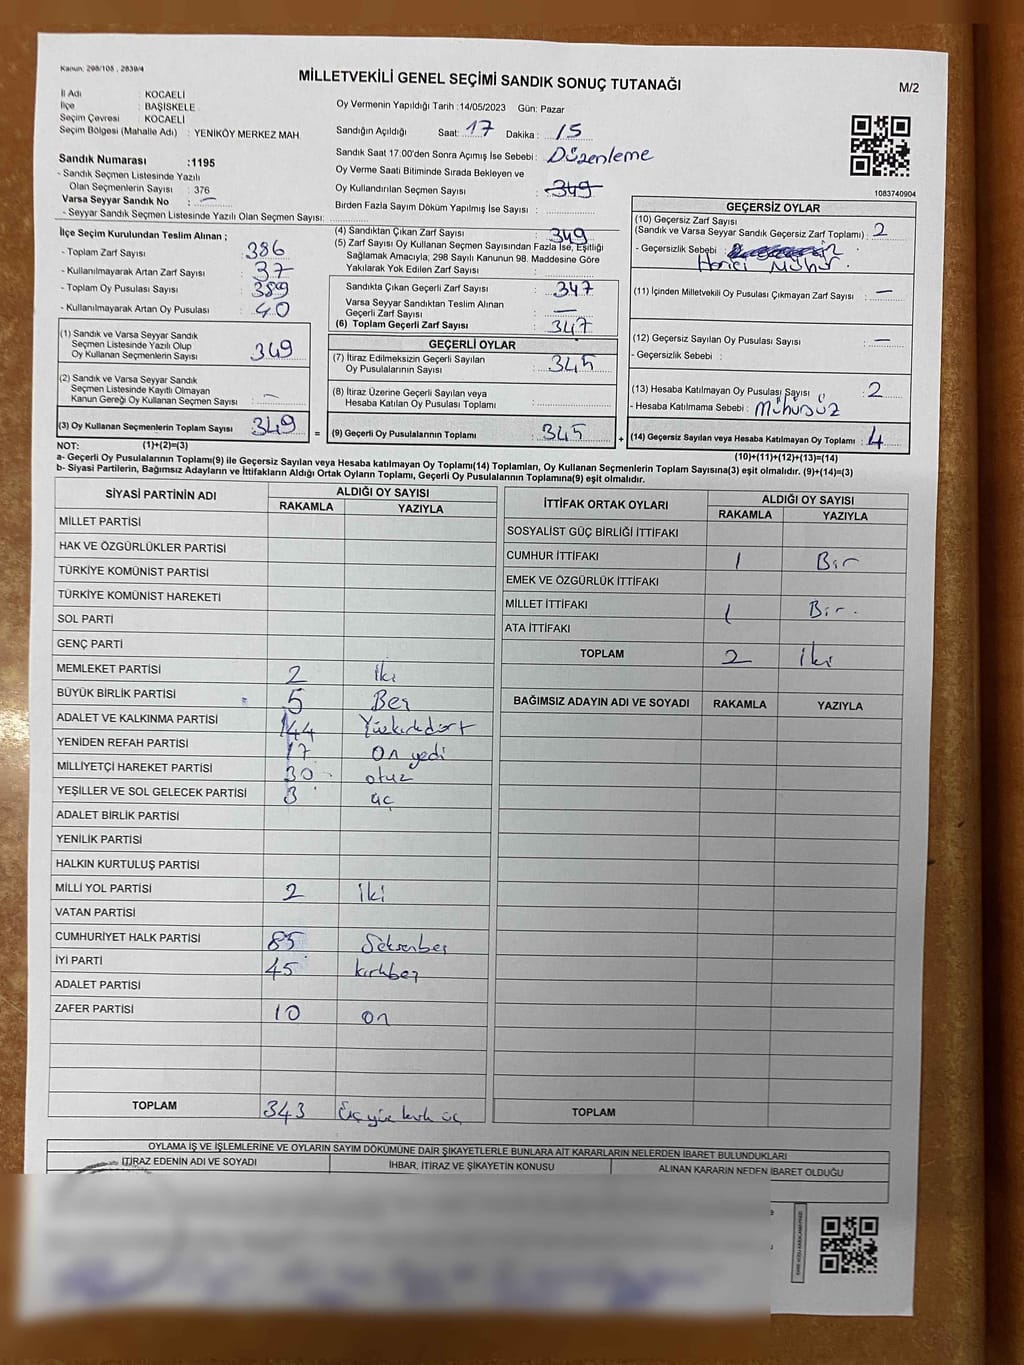 Kanun: 298/105 , 2839/4
MİLLETVEKİLİ GENEL SEÇİMİ SANDIK SONUÇ TUTANAĞI
M/2
İl Adı : KOCAELİ
İlçe : BAŞİSKELE
Seçim Çevresi : KOCAELİ
Seçim Bölgesi (Mahalle Adı) : YENİKÖY MERKEZ MAH.
Sandık Numarası :1195
- Sandık Seçmen Listesinde Yazılı
Olan Seçmenlerin Sayısı : 376
Varsa Seyyar Sandık No : —
- Seyyar Sandık Seçmen Listesinde Yazılı Olan Seçmen Sayısı:
Oy Vermenin Yapıldığı Tarih :14/05/2023 Gün: Pazar
Sandığın Açıldığı Saat: 17 Dakika : 15
Sandık Saat 17:00'den Sonra Açılmış İse Sebebi : Düzenleme
Oy Verme Saati Bitiminde Sırada Bekleyen ve
Oy Kullandırılan Seçmen Sayısı : 349
Birden Fazla Sayım Döküm Yapılmış İse Sayısı :
1083740904
İlçe Seçim Kurulundan Teslim Alınan ;
- Toplam Zarf Sayısı : 386
- Kullanılmayarak Artan Zarf Sayısı : 37
- Toplam Oy Pusulası Sayısı : 389
- Kullanılmayarak Artan Oy Pusulası : 40
(1) Sandık ve Varsa Seyyar Sandık
Seçmen Listesinde Yazılı Olup
Oy Kullanan Seçmenlerin Sayısı : 349
(2) Sandık ve Varsa Seyyar Sandık
Seçmen Listesinde Kayıtlı Olmayan
Kanun Gereği Oy Kullanan Seçmen Sayısı : —
(3) Oy Kullanan Seçmenlerin Toplam Sayısı : 349
(4) Sandıktan Çıkan Zarf Sayısı : 349
(5) Zarf Sayısı Oy Kullanan Seçmen Sayısından Fazla İse, Eşitliği
Sağlamak Amacıyla; 298 Sayılı Kanunun 98. Maddesine Göre
Yakılarak Yok Edilen Zarf Sayısı :
Sandıkta Çıkan Geçerli Zarf Sayısı : 347
Varsa Seyyar Sandıktan Teslim Alınan
Geçerli Zarf Sayısı : —
(6) Toplam Geçerli Zarf Sayısı : 347
GEÇERLİ OYLAR
(7) İtiraz Edilmeksizin Geçerli Sayılan
Oy Pusulalarının Sayısı : 345
(8) İtiraz Üzerine Geçerli Sayılan veya
Hesaba Katılan Oy Pusulası Toplamı :
= (9) Geçerli Oy Pusulalarının Toplamı : 345
GEÇERSİZ OYLAR
(10) Geçersiz Zarf Sayısı
(Sandık ve Varsa Seyyar Sandık Geçersiz Zarf Toplamı) : 2
- Geçersizlik Sebebi :
Harici Mühür.
(11) İçinden Milletvekili Oy Pusulası Çıkmayan Zarf Sayısı : —
(12) Geçersiz Sayılan Oy Pusulası Sayısı : —
- Geçersizlik Sebebi :
(13) Hesaba Katılmayan Oy Pusulası Sayısı : 2
- Hesaba Katılmama Sebebi : Mühürsüz
+ (14) Geçersiz Sayılan veya Hesaba Katılmayan Oy Toplamı : 4
NOT: (1)+(2)=(3)
(10)+(11)+(12)+(13)=(14)
a- Geçerli Oy Pusulalarının Toplamı(9) ile Geçersiz Sayılan veya Hesaba katılmayan Oy Toplamı(14) Toplamları, Oy Kullanan Seçmenlerin Toplam Sayısına(3) eşit olmalıdır. (9)+(14)=(3)
b- Siyasi Partilerin, Bağımsız Adayların ve İttifakların Aldığı Ortak Oyların Toplamı, Geçerli Oy Pusulalarının Toplamına(9) eşit olmalıdır.
SİYASİ PARTİNİN ADI ALDIĞI OY SAYISI
RAKAMLA YAZIYLA
MİLLET PARTİSİ
HAK VE ÖZGÜRLÜKLER PARTİSİ
TÜRKİYE KOMÜNİST PARTİSİ
TÜRKİYE KOMÜNİST HAREKETİ
SOL PARTİ
GENÇ PARTİ
MEMLEKET PARTİSİ 2 İki
BÜYÜK BİRLİK PARTİSİ 5 Beş
ADALET VE KALKINMA PARTİSİ 144 Yüzkırkdört
YENİDEN REFAH PARTİSİ 17 On yedi
MİLLİYETÇİ HAREKET PARTİSİ 30 otuz
YEŞİLLER VE SOL GELECEK PARTİSİ 3 üç
ADALET BİRLİK PARTİSİ
YENİLİK PARTİSİ
HALKIN KURTULUŞ PARTİSİ
MİLLİ YOL PARTİSİ 2 İki
VATAN PARTİSİ
CUMHURİYET HALK PARTİSİ 85 Seksenbeş
İYİ PARTİ 45 kırkbeş
ADALET PARTİSİ
ZAFER PARTİSİ 10 on
TOPLAM 343 Üç yüz kırk üç
İTTİFAK ORTAK OYLARI ALDIĞI OY SAYISI
RAKAMLA YAZIYLA
SOSYALİST GÜÇ BİRLİĞİ İTTİFAKI
CUMHUR İTTİFAKI 1 Bir
EMEK VE ÖZGÜRLÜK İTTİFAKI
MİLLET İTTİFAKI 1 Bir.
ATA İTTİFAKI
TOPLAM 2 İki
BAĞIMSIZ ADAYIN ADI VE SOYADI RAKAMLA YAZIYLA
TOPLAM
OYLAMA İŞ VE İŞLEMLERİNE VE OYLARIN SAYIM DÖKÜMÜNE DAİR ŞİKAYETLERLE BUNLARA AİT KARARLARIN NELERDEN İBARET BULUNDUKLARI
İTİRAZ EDENİN ADI VE SOYADI İHBAR, İTİRAZ VE ŞİKAYETİN KONUSU ALINAN KARARIN NEDEN İBARET OLDUĞU